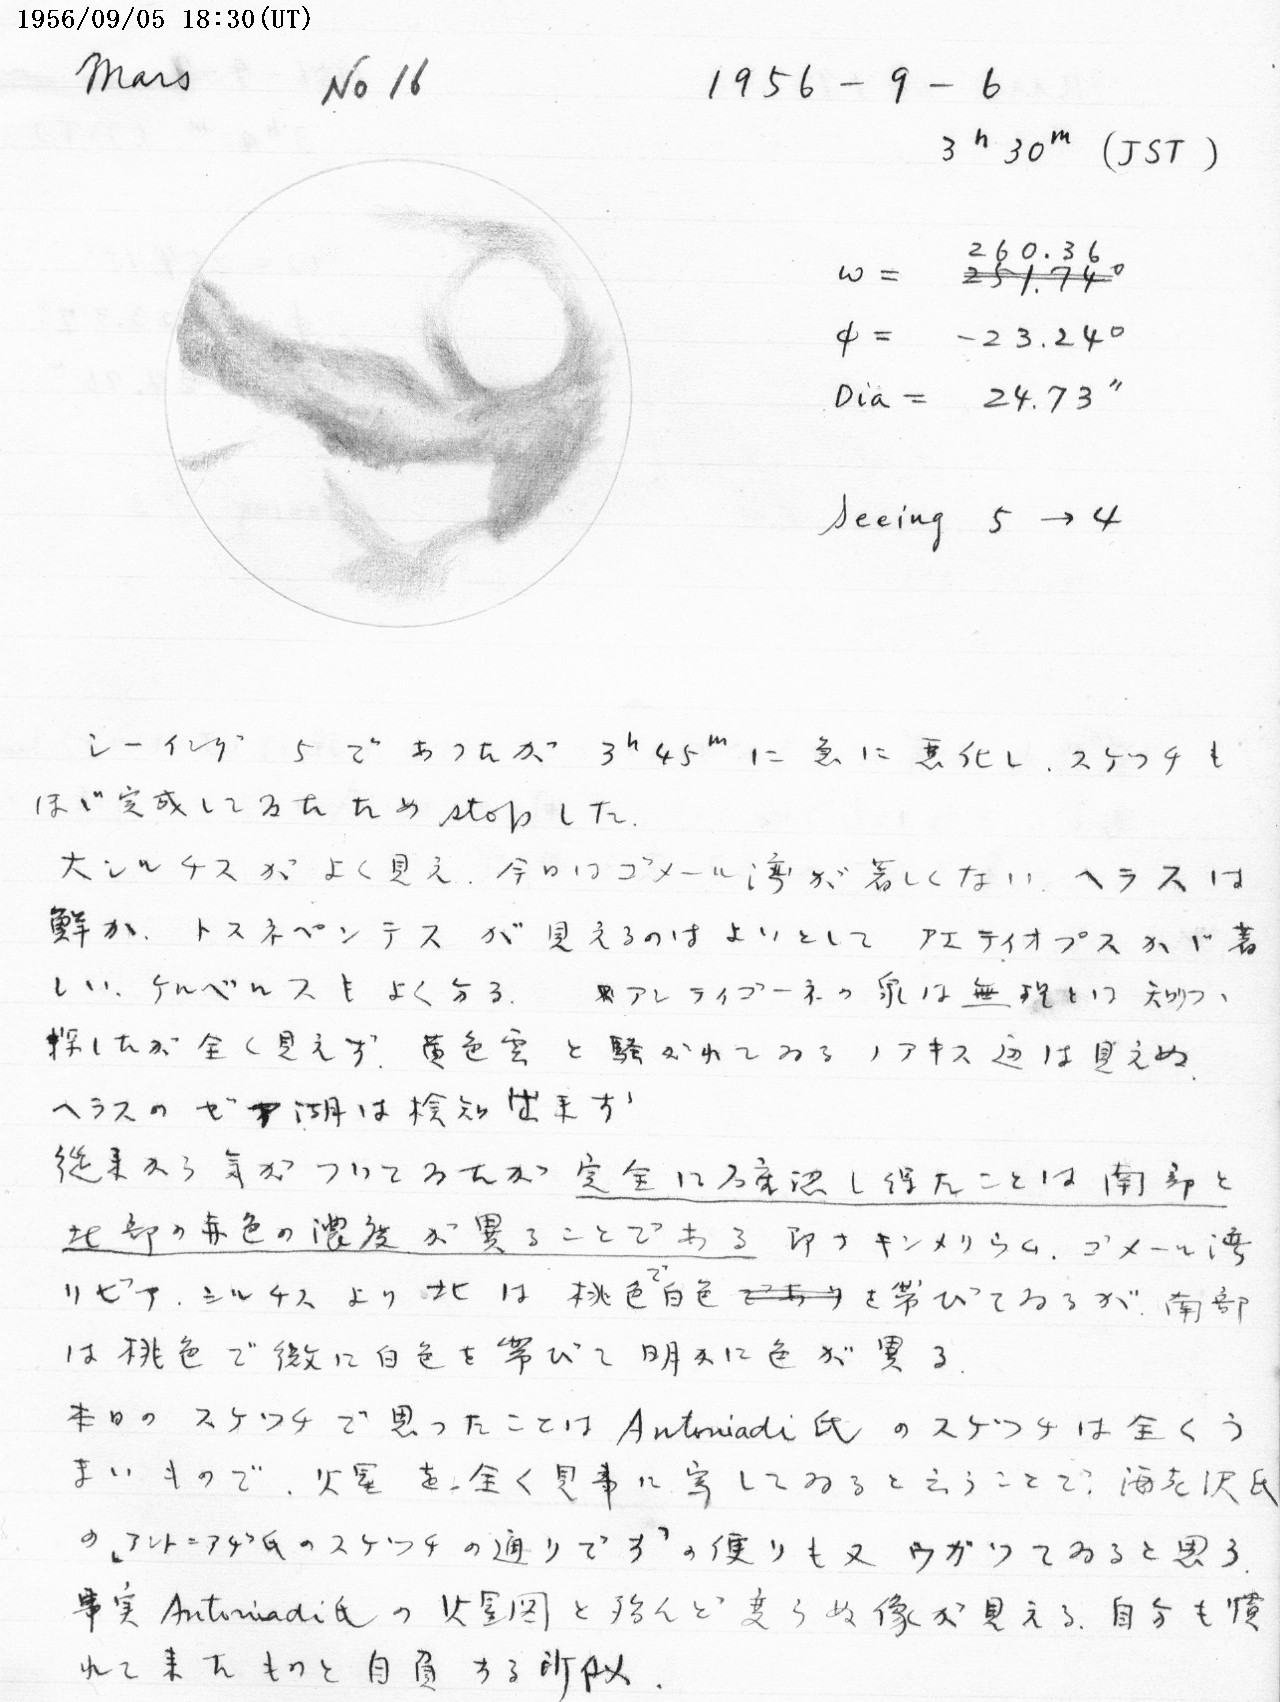 1956/09/05 18:30(UT)
Mars No 16 1956-9-6
3h 30m (JST)
260.36
ω= 251.74°
φ= -23.24°
Dia= 24.73"
Seeing 5→4
シーイング 5であつたが 3h45mに急に悪化し、スケツチも
ほゞ完成してゐたため stopした.
大シルチスがよく見え、今日はゴメール湾が著しくない、ヘラスは
鮮か、トスネペンテスが見えるのはよいとして アエティオプスがゞ著
しい、ケルベルスもよく分る. アンティゴーネの泉は無理とは知りつゝ
探したが全く見えず、黄色雲と騒がれてゐるノアキス辺は見えぬ.
ヘラスのゼア湖は検知出来ず
従来から気がついてゐたが完全に確認し得たことは南部と
北部の赤色の濃度が異ることである 即ナキンメリウム、ゴメール湾
リビア、シルチスより北は桃色で白色でありを帯びてゐるが、南部
は桃色で微に白色を帯びて明かに色が異る.
本日のスケツチで思ったことは Antoniadi氏のスケツチは全くう
まいもので、火星を全く見事に写してゐると云うことで、海老沢氏
の「アントニアヂ氏のスケツチの通りです」の便りも又ウガツてゐると思う.
事実 Antoniadi氏の火星図と殆んど変らぬ像が見える、自分も慣
れて来たものと自負する所以.